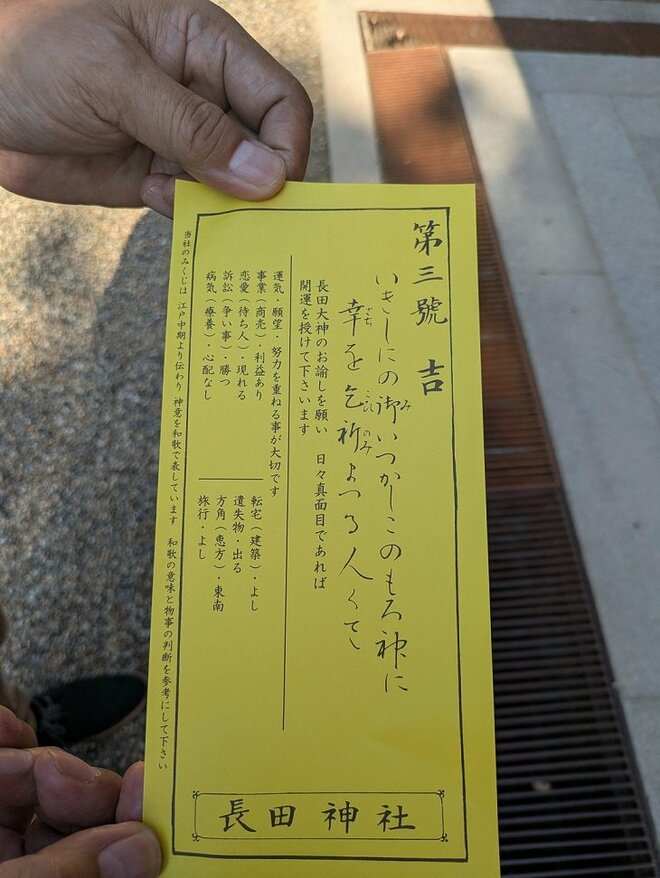 第三號 吉
いきしにの御いつかしこのもろ神に
み
幸を乞祈まつる人くさ
さち こひ のみ
長田大神のお諭しを願い 日々真面目であれば
開運を授けて下さいます
運気・願望・努力を重ねる事が大切です
事業(商売)・利益あり
恋愛(待ち人)・現れる
訴訟(争い事)・勝つ
病気(療養)・心配なし
転宅(建築)・よし
遺失物・出る
方角(恵方)・東南
旅行・よし
当社のみくじは 江戸中期より伝わり 神意を和歌で表しています 和歌の意味と物事の判断を参考にして下さい
長田神社